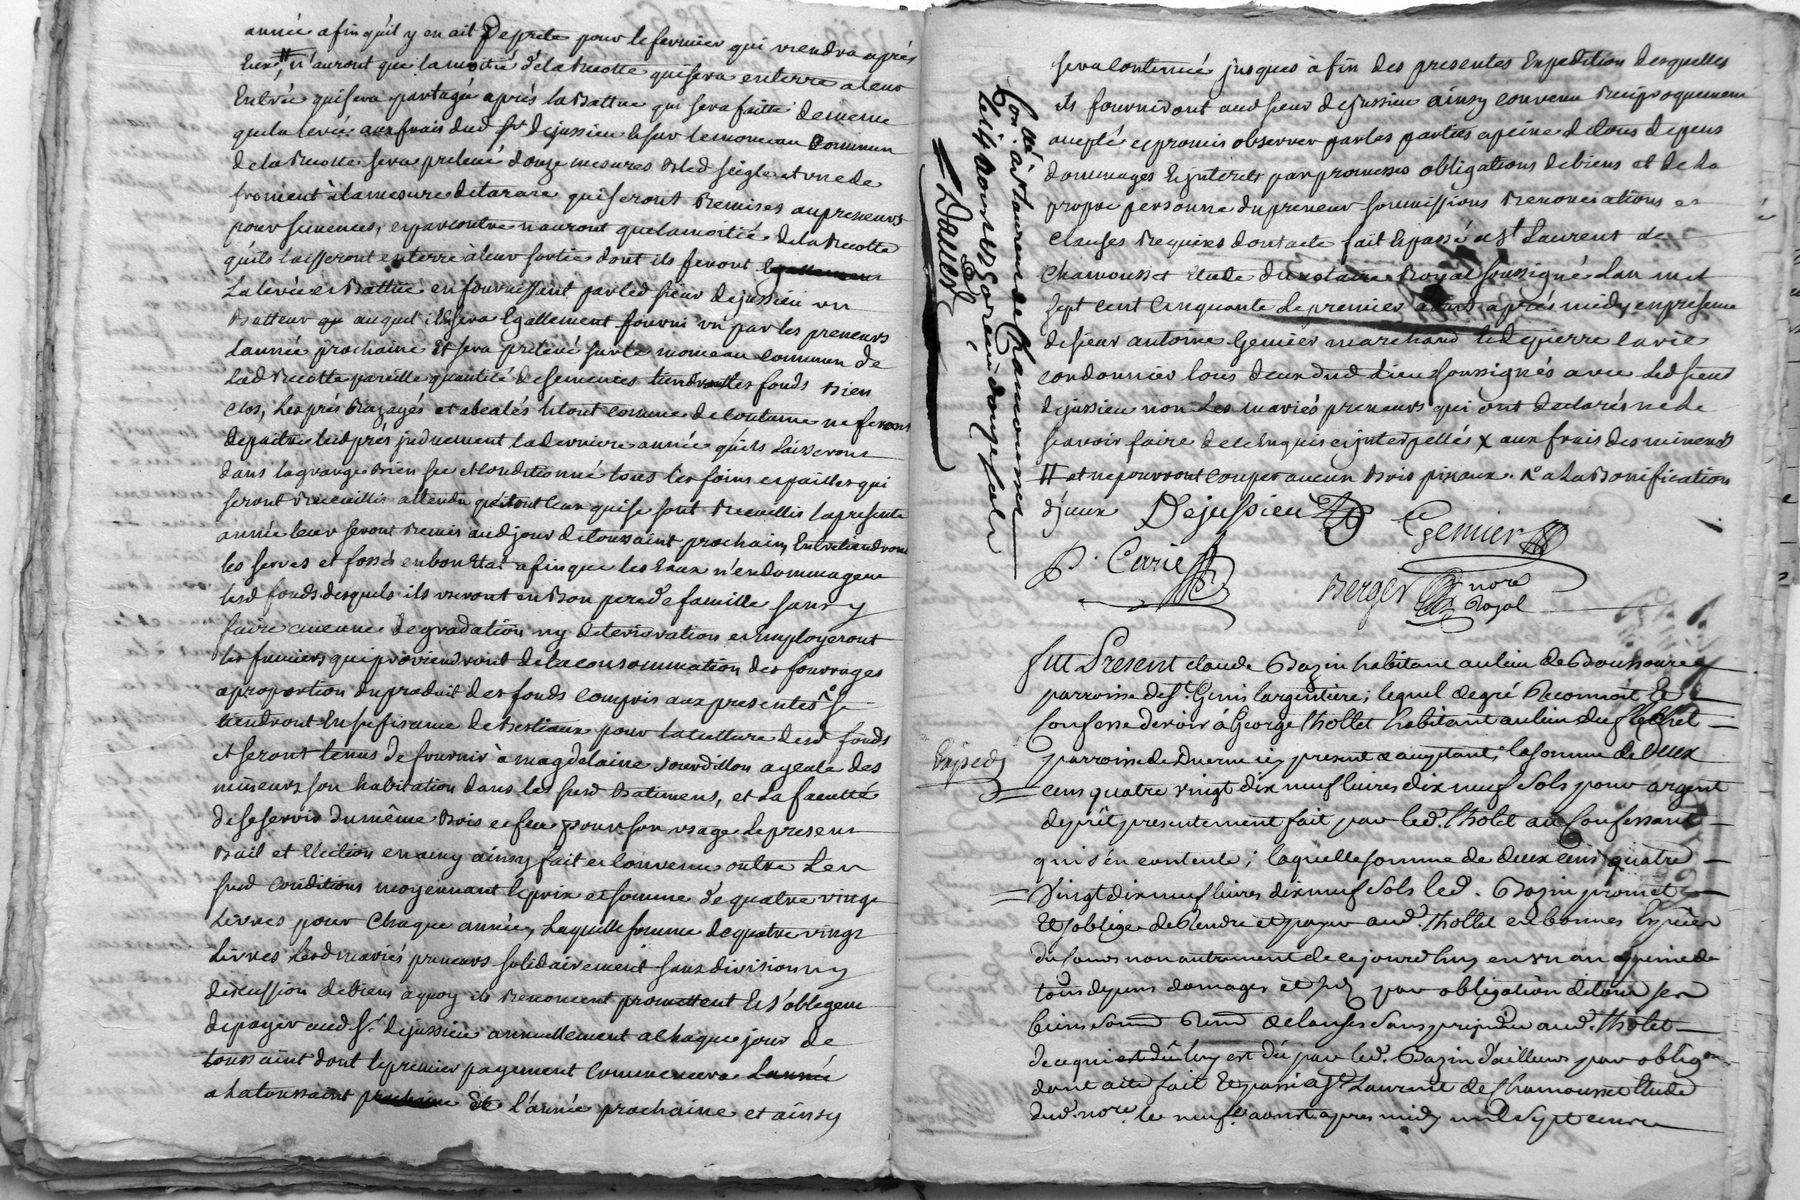 année afin qu'il y en ait de prete pour le fermier qui viendra aprés
Eux, # n'auront que la moitié de la Recotte qui sera enterre a leur
Entrée qui sera partagée aprés la Battue qui sera faitte de meme
que la levée aux frais dud Sr. dejussieu & sur le monceau Commun
de la Recotte sera prelevé douze mesures bled seigle et une de
froment à la mesure de tarare qui seront Remises aux preneurs
pour semences, en par contre n'auront que la moitié de la Recotte
qu'ils laisseront enterre à leur sortie dont ils feront Egallement
La levée et Battue en fournissant par led sieur dejussieu un
Batteur au quel il sera Egallement fourni un par les preneurs
L'année prochaine Et sera prelevé sur le monceau commun de
Lad Recotte pareille quantité de semences tiendront les fonds Bien
clos, Les prés Razayés et abealés le tout comme de coutume ne feront
depaitre lesd prés induement la derniere année qu'ils Laisseront
dans la grange Bien sec et conditionné tous les foins et pailles qui
seront Recueillis attendu que tout ceux qui se sont Recueillis la presente
année leur seront Remis aud jour de toussaint prochain, Entretiendront
les serves et fossés en bon Etat afin que les Eaux n'endommagent
lesd fonds desquels ils useront en Bon pere de famille sans y
faire aucune degradation ny deteriorations et Employeront
les fumiers qui proviendront de la consommation des fourrages
a proportion du produit des fonds compris aux presentes se
tiendront En sufisance de Bestiaux pour la culture desd fonds
et seront tenus de fournir à magdelaine Jourdillon ayeule des
mineurs son habitation dans les susd Batimens, et La faculté
de se servir du même Bois et feu pour son usage Le present
Bail et Election en amy ainsy fait et Convenu outre Les
susd conditions moyennant le prix et somme de quatre vingt
Livres pour Chaque année, Laquelle somme de quatre vingt
Livres Lesd mariés preneurs solidairement sans division ny
discussion de Biens à quoy ils Renoncent promettent Et s'obligent
de payer aud Sr. dejussieu annuellement a chaque jour de
toussaint dont le premier payement Commencera L'année
a la toussaint prochaine de l'année prochaine et ainsy
sera Continué jusques à fin des presentes Expedition desquelles
ils fourniront aud sieur dejussieu ainsy convenu Reciproquement
accepté et promis observer par les parties a peine de tous depens
dommages Et interets par promesses obligations de biens et de La
propre personne du preneur soumissions Renonciations et
clauses Requises dont acte fait & passé a St Laurent de
Chamousset Etude du notaire Royal soussigné L'an mil
sept cent Cinquante Le premier aoust aprés midy en presence
de sieur antoine Gemier marchand & de pierre Carie
cordonnier tous deux dud Lieu soussignés avec Led sieur
dejussieu non Les mariés preneurs qui ont declaré ne le
sçavoir faire de ce Enquis et interpellés x aux frais des mineurs
# et ne pourront couper aucun Bois pizaux. a La Bonification
d'jceux Dejussieu Gemier
P. Carie Berger nore
Royal
Con. lé à St Laurent de Chamousset
Le dix aoust 1750 receu douze sols
Dauest
Fut Present claude Bazin habitant au lieu de
parroisse de St. Genis largentiere; lequel de gré Reconnoit Et
Confesse devoir à George thollet habitant au lieu du
parroisse de Duerne icy present & acceptant; la somme de deux
Expedy
cens quatre vingt dix neuf livres dix neuf sols pour argent
de prêt presentement fait par led. tholet au Confessant
qui s'en contente; laquelle somme de deux cens quatre
vingt dix neuf livres dix neuf sols led. Bazin promet
Et s'oblige de Rendre et payer aud. thollet en bonnes Especes
du cours non autrement de ce jourd'huy en un an a peine de
tous depens domages et jnts par obligation de tous ses
biens soum Renon & clauses sans prejudice aud. Tholet
de ce qui est dû luy est dû par led. Bazin d'ailleurs par obligon
dont acte fait Et passé a St Laurent de Chamousset Etude
dud. nore. le neuf. aoust apres midy mil sept cent